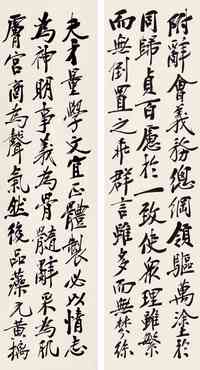 附辭會義務總綱領驅萬塗於
同歸貞百慮於一致使衆理雖繁
而無倒置之乖群言雖多而無棼絲
夫才量學文宜正體製必以情志
為神明事義為骨髓辭采為肌
膚宮商為聲氣然後品藻元黃摛